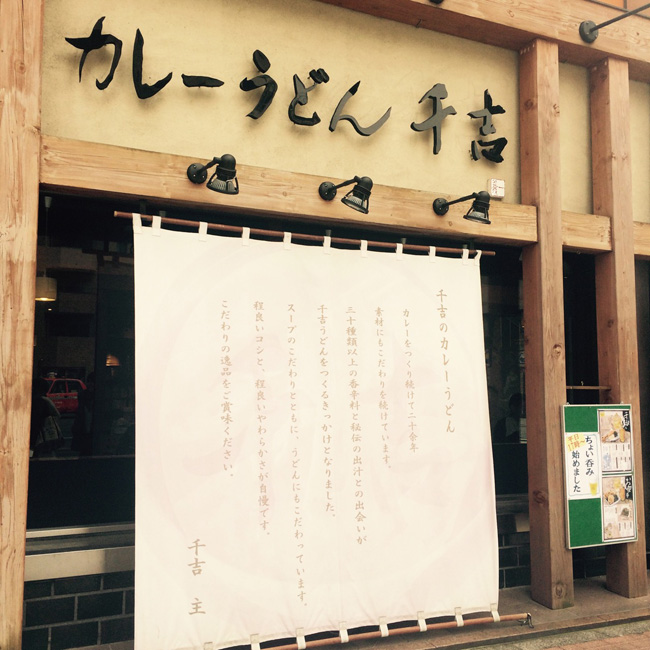 カレーうどん 千吉
千吉のカレーうどん
カレーをつくり続けて二十余年
素材にもこだわりを続けています。
三十種類以上の香辛料と秘伝の出汁との出会いが
千吉うどんをつくるきっかけとなりました。
スープのこだわりとともに、うどんにもこだわっています。
程良いコシと、程良いやわらかさが自慢です。
こだわりの逸品をご賞味ください。
千吉 主
ちょい呑み
始めました